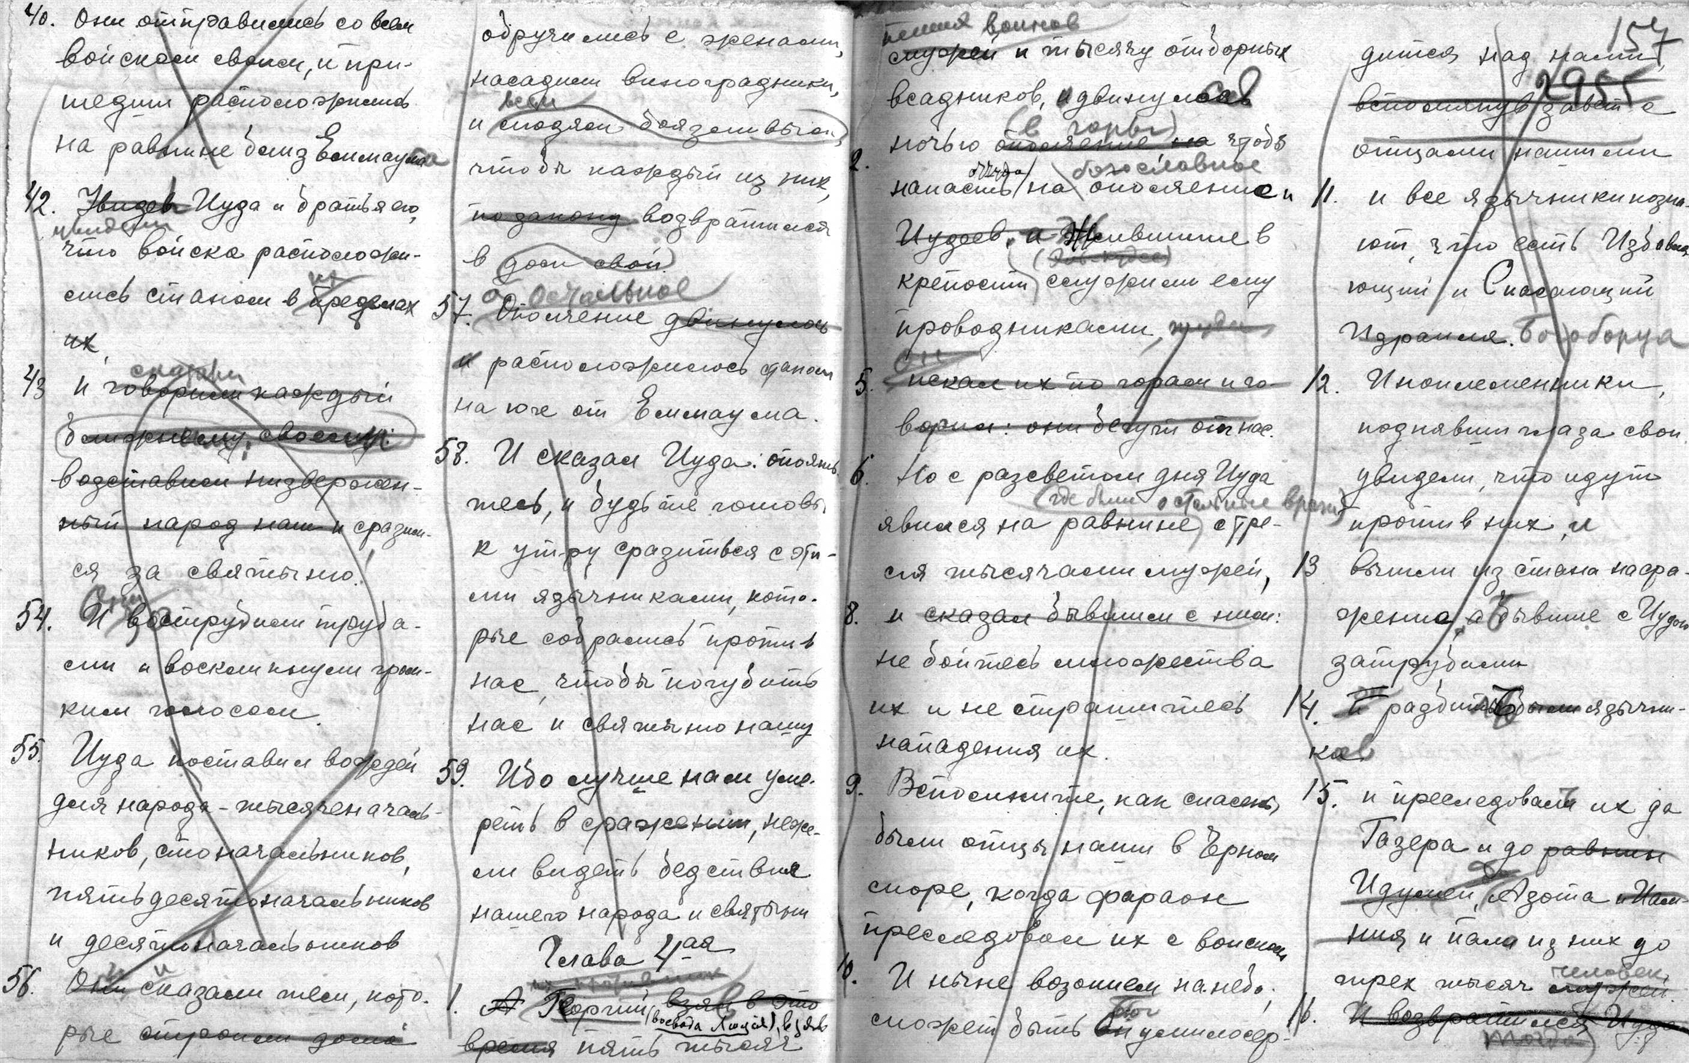 40. Они отправились со всем
войском своим, и при-
шедши расположились
на равнине близ Еммаума
42. Увидев Иуда и братья его,
увидели
что войска расположи-
лись станом в пределах
их,
сказали
43 и говорили каждый
ближнему своему:
восставим низвержен-
ный народ наш и сразим-
ся за святыню!
54. И вострубили труба-
ми и воскликнули гром-
ким голосом.
55. Иуда поставил вождей
для народа - тысяченачаль-
ников, стоначальников,
пятьдесятоначальников
и десятоначальников
56. Они сказали тем, кото-
рые строили дома
обручились с женами,
насадили виноградники,
всем
и людям боязливым,
чтобы каждый из них,
по закону возвратился
в дом свой.
а остальное
57. Ополчение двинулось
и расположилось станом
на юге от Еммаума.
58. И сказал Иуда: опоять
тесь, и будьте готовы
к утру сразиться с эти-
ми язычниками, кото-
рые собрались против
нас, чтобы погубить
нас и святыню нашу
59. Ибо лучше нам уме-
реть в сражении, неже-
ли видеть бедствия
нашего народа и святыни
Глава 4ая
1. А Горгий взял в это
(воевода Лисия), взяв
время пять тысяч
пеших воинов
мужей и тысячу отборных
всадников, и двинулся
(в горы)
ночью ополчение на чтобы
2. богославное
напасть на ополчение и
Иудеев, а Жившие в
крепости служили ему
проводниками,
он
5. искал их по горам и го-
ворил: они бегут от нас.
6. Но с разсветом дня Иуда
(где были остальные враги)
явился на равнине с тре-
мя тысячами мужей,
8. и сказал бывшим с ним:
не бойтесь множества
их и не страшитесь
нападения их.
9. Вспомните, как спасены
были отцы наши в Чермном
море, когда фараон
преследовал их с войском
10. И ныне возопием на небо,
Бог
может быть Он умилосер-
157
дится над нами,
2955
вспомянув завет с
отцами нашими
11. и все язычники позна-
ют, что есть Избавля
ющий и Спасающий
Израиля. Богоборца
12. Иноплеменники,
поднявши глаза свои
увидели, что идут
против них, и
13 вышли из стана на сра-
жение, а бывшие с Иудою
затрубили
14. и разбиты были язычни-
ков
15. и преследовали их до
Газера и до равнин
Идумеи, Азота и Иам-
ния и пало из них до
человек.
трех тысяч мужей.
16. И возвратился Иуда
тогда